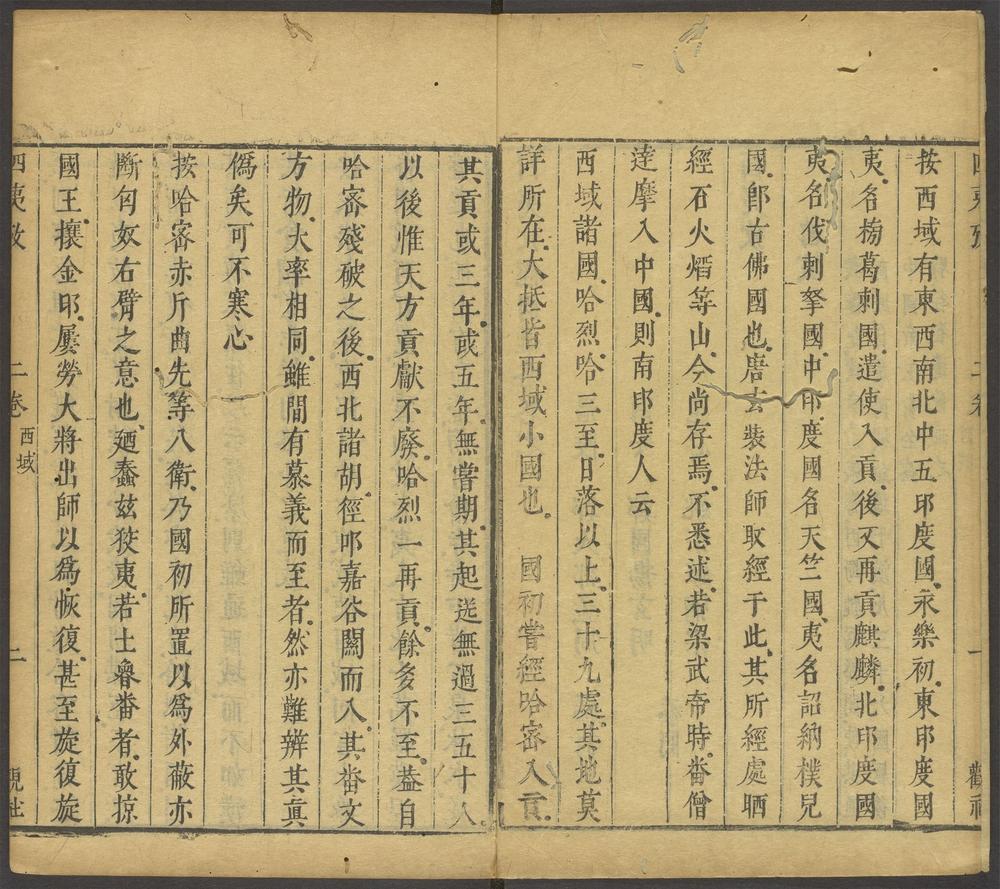 按西域有東西南北中五印度國永樂初東印度國
夷名榜葛剌國遣使入貢後又再貢麒麟北印度國
夷名伐剌拏國中印度國名天竺國夷名詔納樸兒
國卽古佛國也唐玄裝法師取經于此其所經處晒
經石火熖等山今尚存焉不悉述若梁武帝時畨僧
達摩入中國則南印度人云
西域諸國哈烈哈三至日落以上三十九處其地莫
詳所在大抵皆西域小國也 國初嘗經哈密入貢
其貢或三年或五年無嘗期其起送無過三五十人
以後惟天方貢獻不廢哈烈一再貢餘多不至葢自
哈密殘破之後西北諸胡徑叩嘉谷關而入其畨文
方物大率相同雖間有慕義而至者然亦難辨其眞
僞矣可不寒心
按哈密赤斤曲先等八衛乃國初所置以爲外蔽亦
斷匈奴右臂之意也廼蠢玆狡夷若土魯畨者敢掠
國王攘金印屢勞大將出師以爲恢復甚至旋復旋
四夷攷 二卷 西域 二